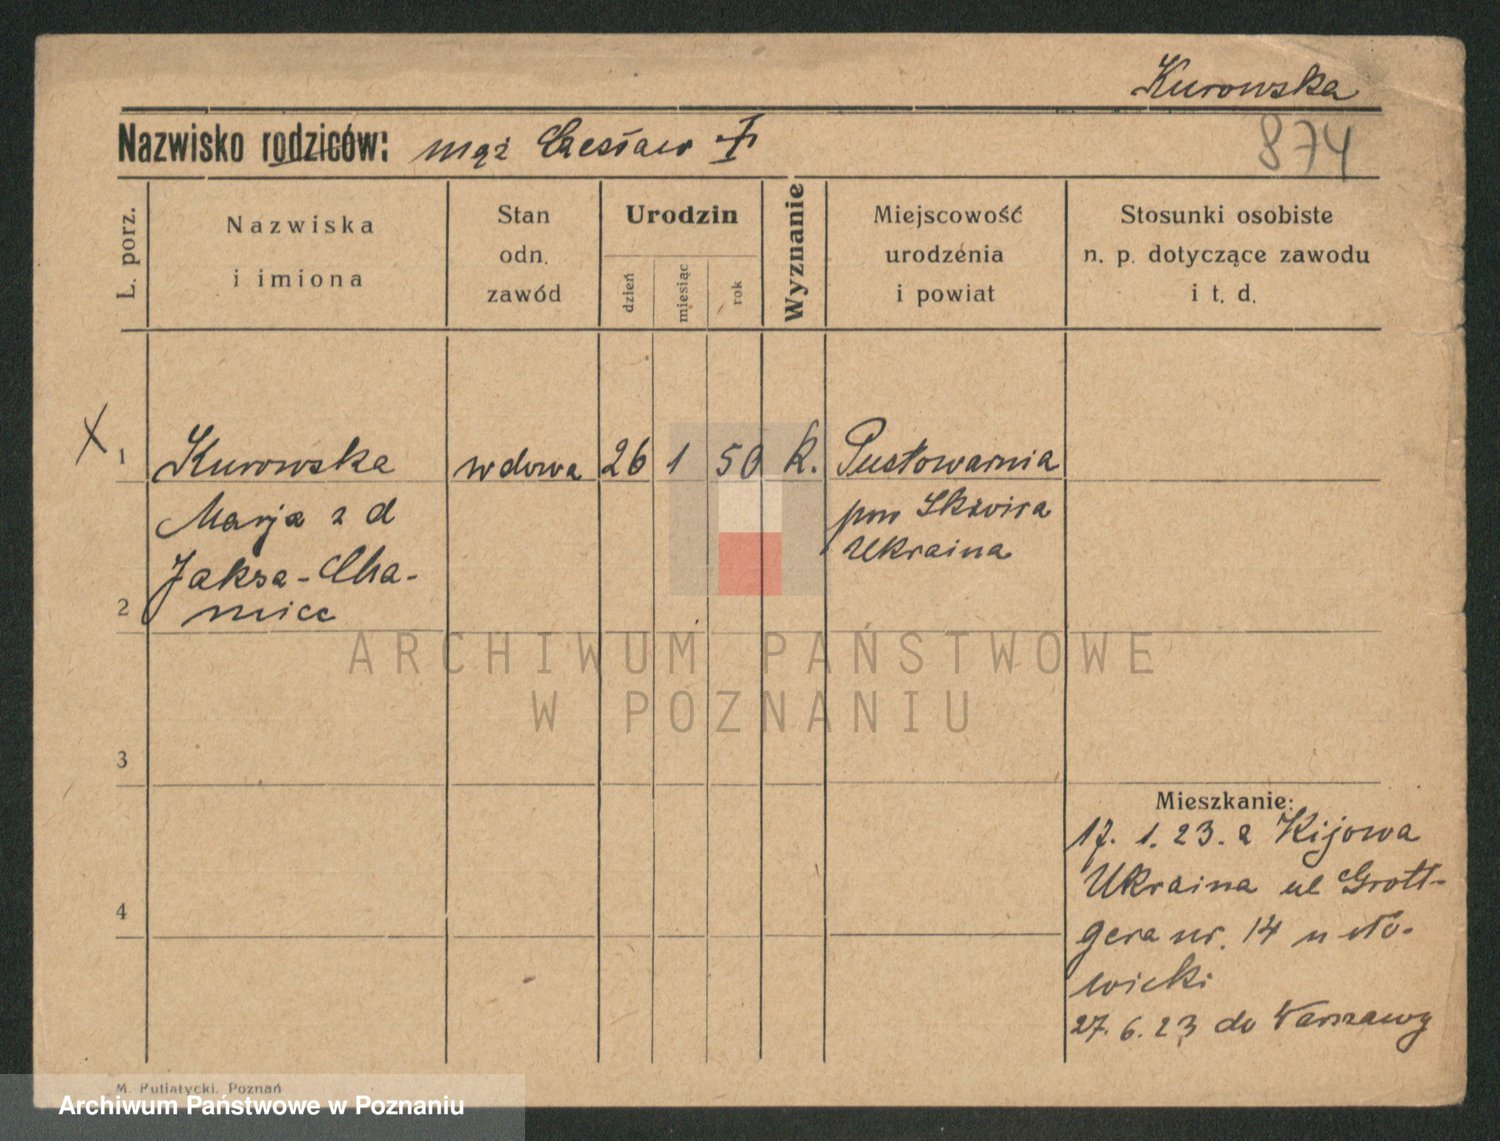 Kurowska
874
Nazwisko rodziców: mąż Czesław
L. porz.
Nazwiska
i imiona
Stan
odn.
zawód
Urodzin
dzień
miesiąc
rok
Wyznanie
Miejscowość
urodzenia
i powiat
Stosunki osobiste
n. p. dotyczące zawodu
i t. d.
X 1 Kurowska wdowa 26 1 50 k. Pustowarnia
Marja z d pow Skwira
Jaksa-Cha- Ukraina
2 miec
ARCHIWUM PAŃSTWOWE
W POZNANIU
3
Mieszkanie:
17. 1. 23. z Kijowa
Ukraina ul Grott-
4
gera nr. 14 u
wicki
27. 6. 23 do Warszawy
M. Putiatycki, Poznań
Archiwum Państwowe w Poznaniu